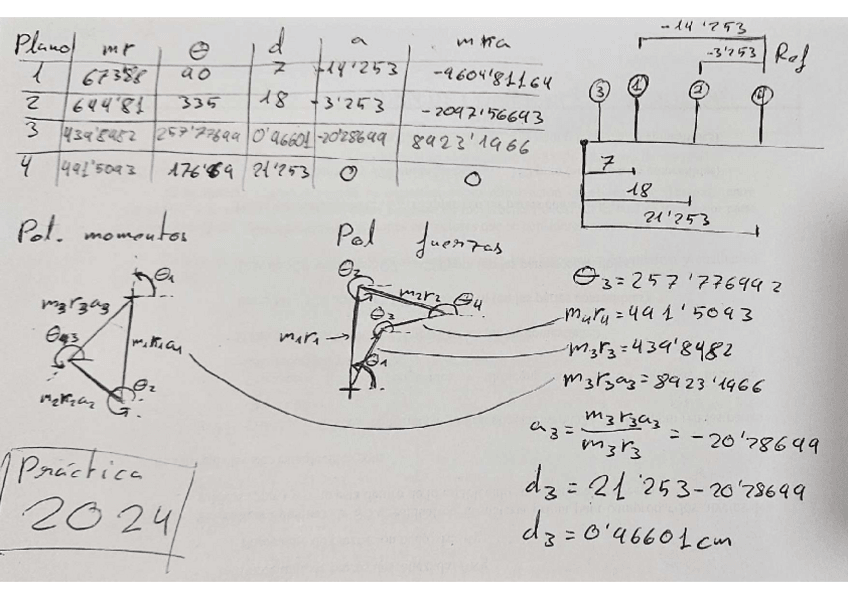 Plano mr θ d a mra
1 673'88 90 7 -14'253 -9604'81164
2 644'81 335 18 -3'253 -2097'56693
3 439'8482 257'77699 0'96601 -20'28699 8923'1966
4 491'5093 176'69 21'253 0 0
-14'253
-3'253 Ref
3 1 2 4
7
18
21'253
Pol. momentos
Pol fuerzas
θ1
m3r3a3
θ3
m1r1a1
θ2
m2r2a2
θ2
m2r2
θ4
θ3
m1r1
θ1
θ3=257'776992
m4r4=491'5093
m3r3=439'8482
m3r3a3=8923'1966
a3= m3r3a3 / m3r3 = -20'28699
d3=21'253-20'28699
d3=0'96601cm
Práctica
2024